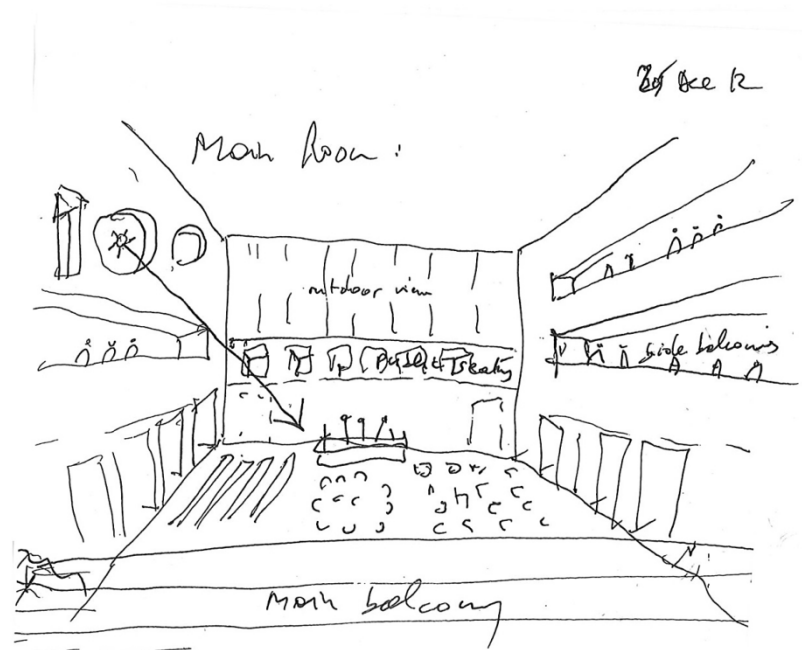 Dec 12
Main Room :
outdoor view
Seating
side balconies
Main balcony